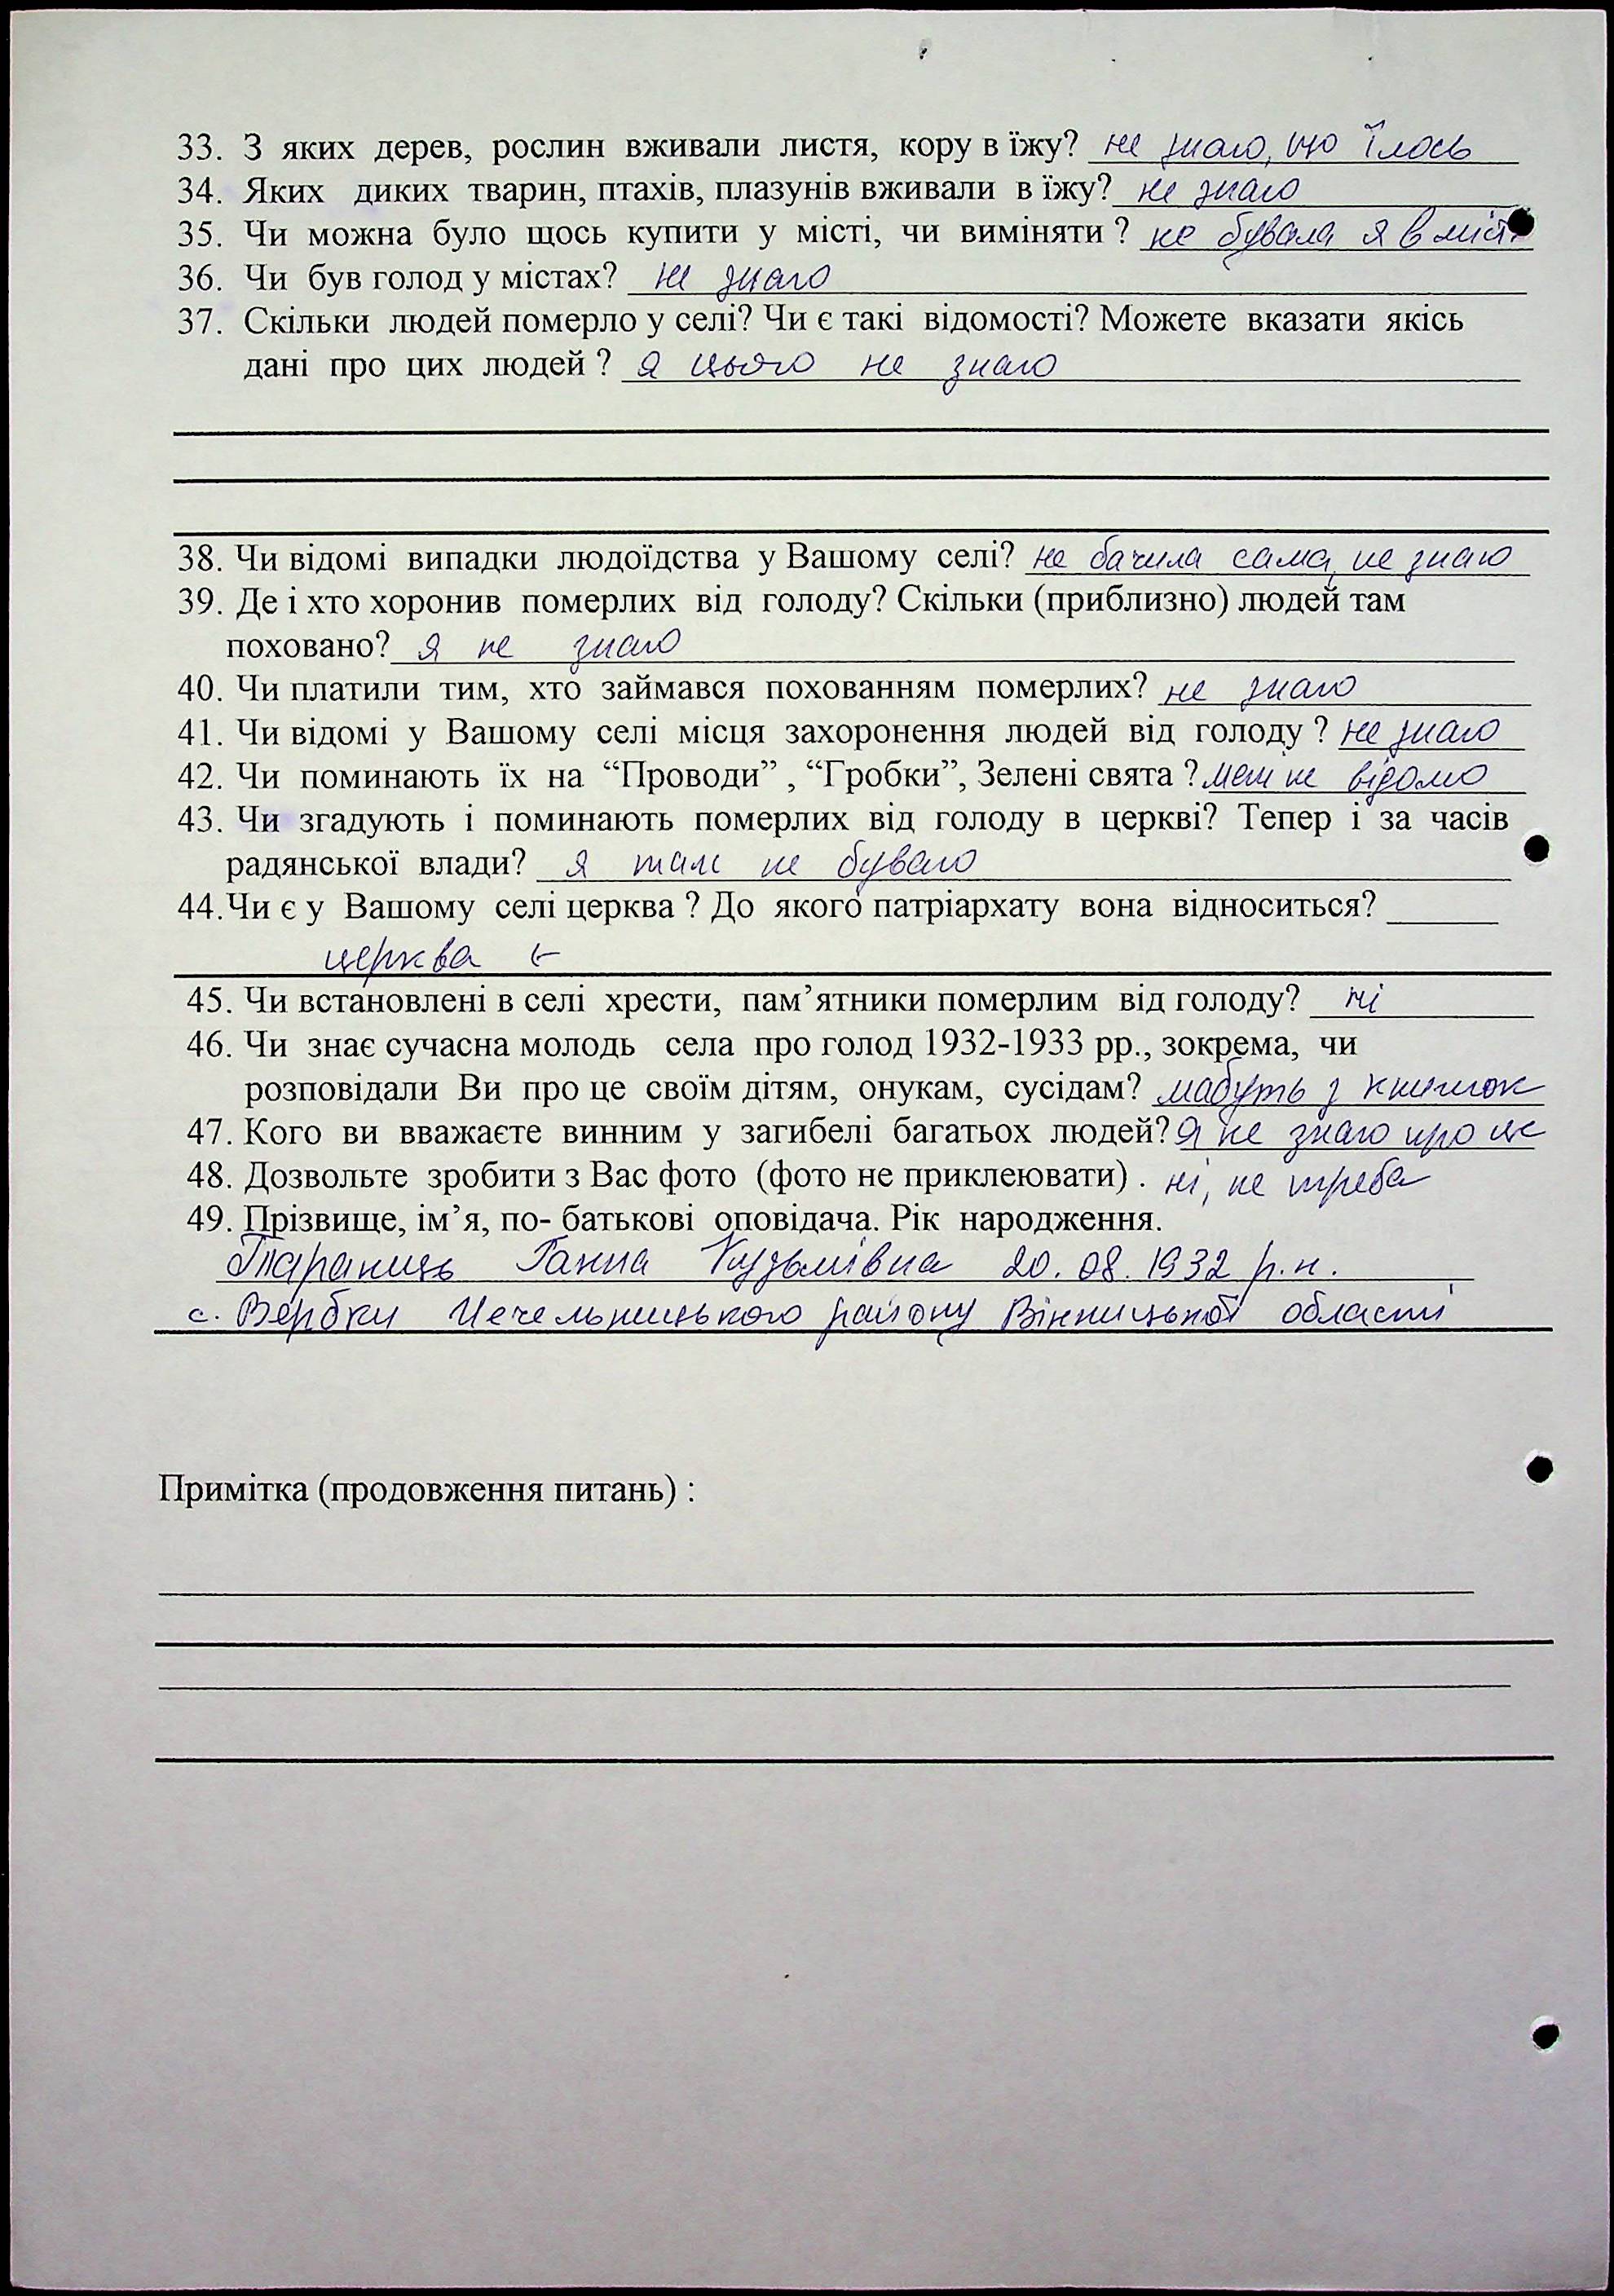 33. З яких дерев, рослин вживали листя, кору в їжу? не знаю, що їлось
34. Яких диких тварин, птахів, плазунів вживали в їжу? не знаю
35. Чи можна було щось купити у місті, чи виміняти ? не бувала я в місті
36. Чи був голод у містах? не знаю
37. Скільки людей померло у селі? Чи є такі відомості? Можете вказати якісь
дані про цих людей ? я цього не знаю
38. Чи відомі випадки людоїдства у Вашому селі? не бачила сама, не знаю
39. Де і хто хоронив померлих від голоду? Скільки (приблизно) людей там
поховано? я не знаю
40. Чи платили тим, хто займався похованням померлих? не знаю
41. Чи відомі у Вашому селі місця захоронення людей від голоду ? не знаю
42. Чи поминають їх на “Проводи” , “Гробки”, Зелені свята ? мені не відомо
43. Чи згадують і поминають померлих від голоду в церкві? Тепер і за часів
радянської влади? я там не буваю
44.Чи є у Вашому селі церква ? До якого патріархату вона відноситься?
церква є
45. Чи встановлені в селі хрести, пам’ятники померлим від голоду? ні
46. Чи знає сучасна молодь села про голод 1932-1933 рр., зокрема, чи
розповідали Ви про це своїм дітям, онукам, сусідам? мабуть з книжок
47. Кого ви вважаєте винним у загибелі багатьох людей? Я не знаю про це
48. Дозвольте зробити з Вас фото (фото не приклеювати) . ні, не треба
49. Прізвище, ім’я, по- батькові оповідача. Рік народження.
Таранець Ганна Кузьмівна 20. 08. 1932 р.н.
с. Вербки Чечельницького району Вінницької області
Примітка (продовження питань) :